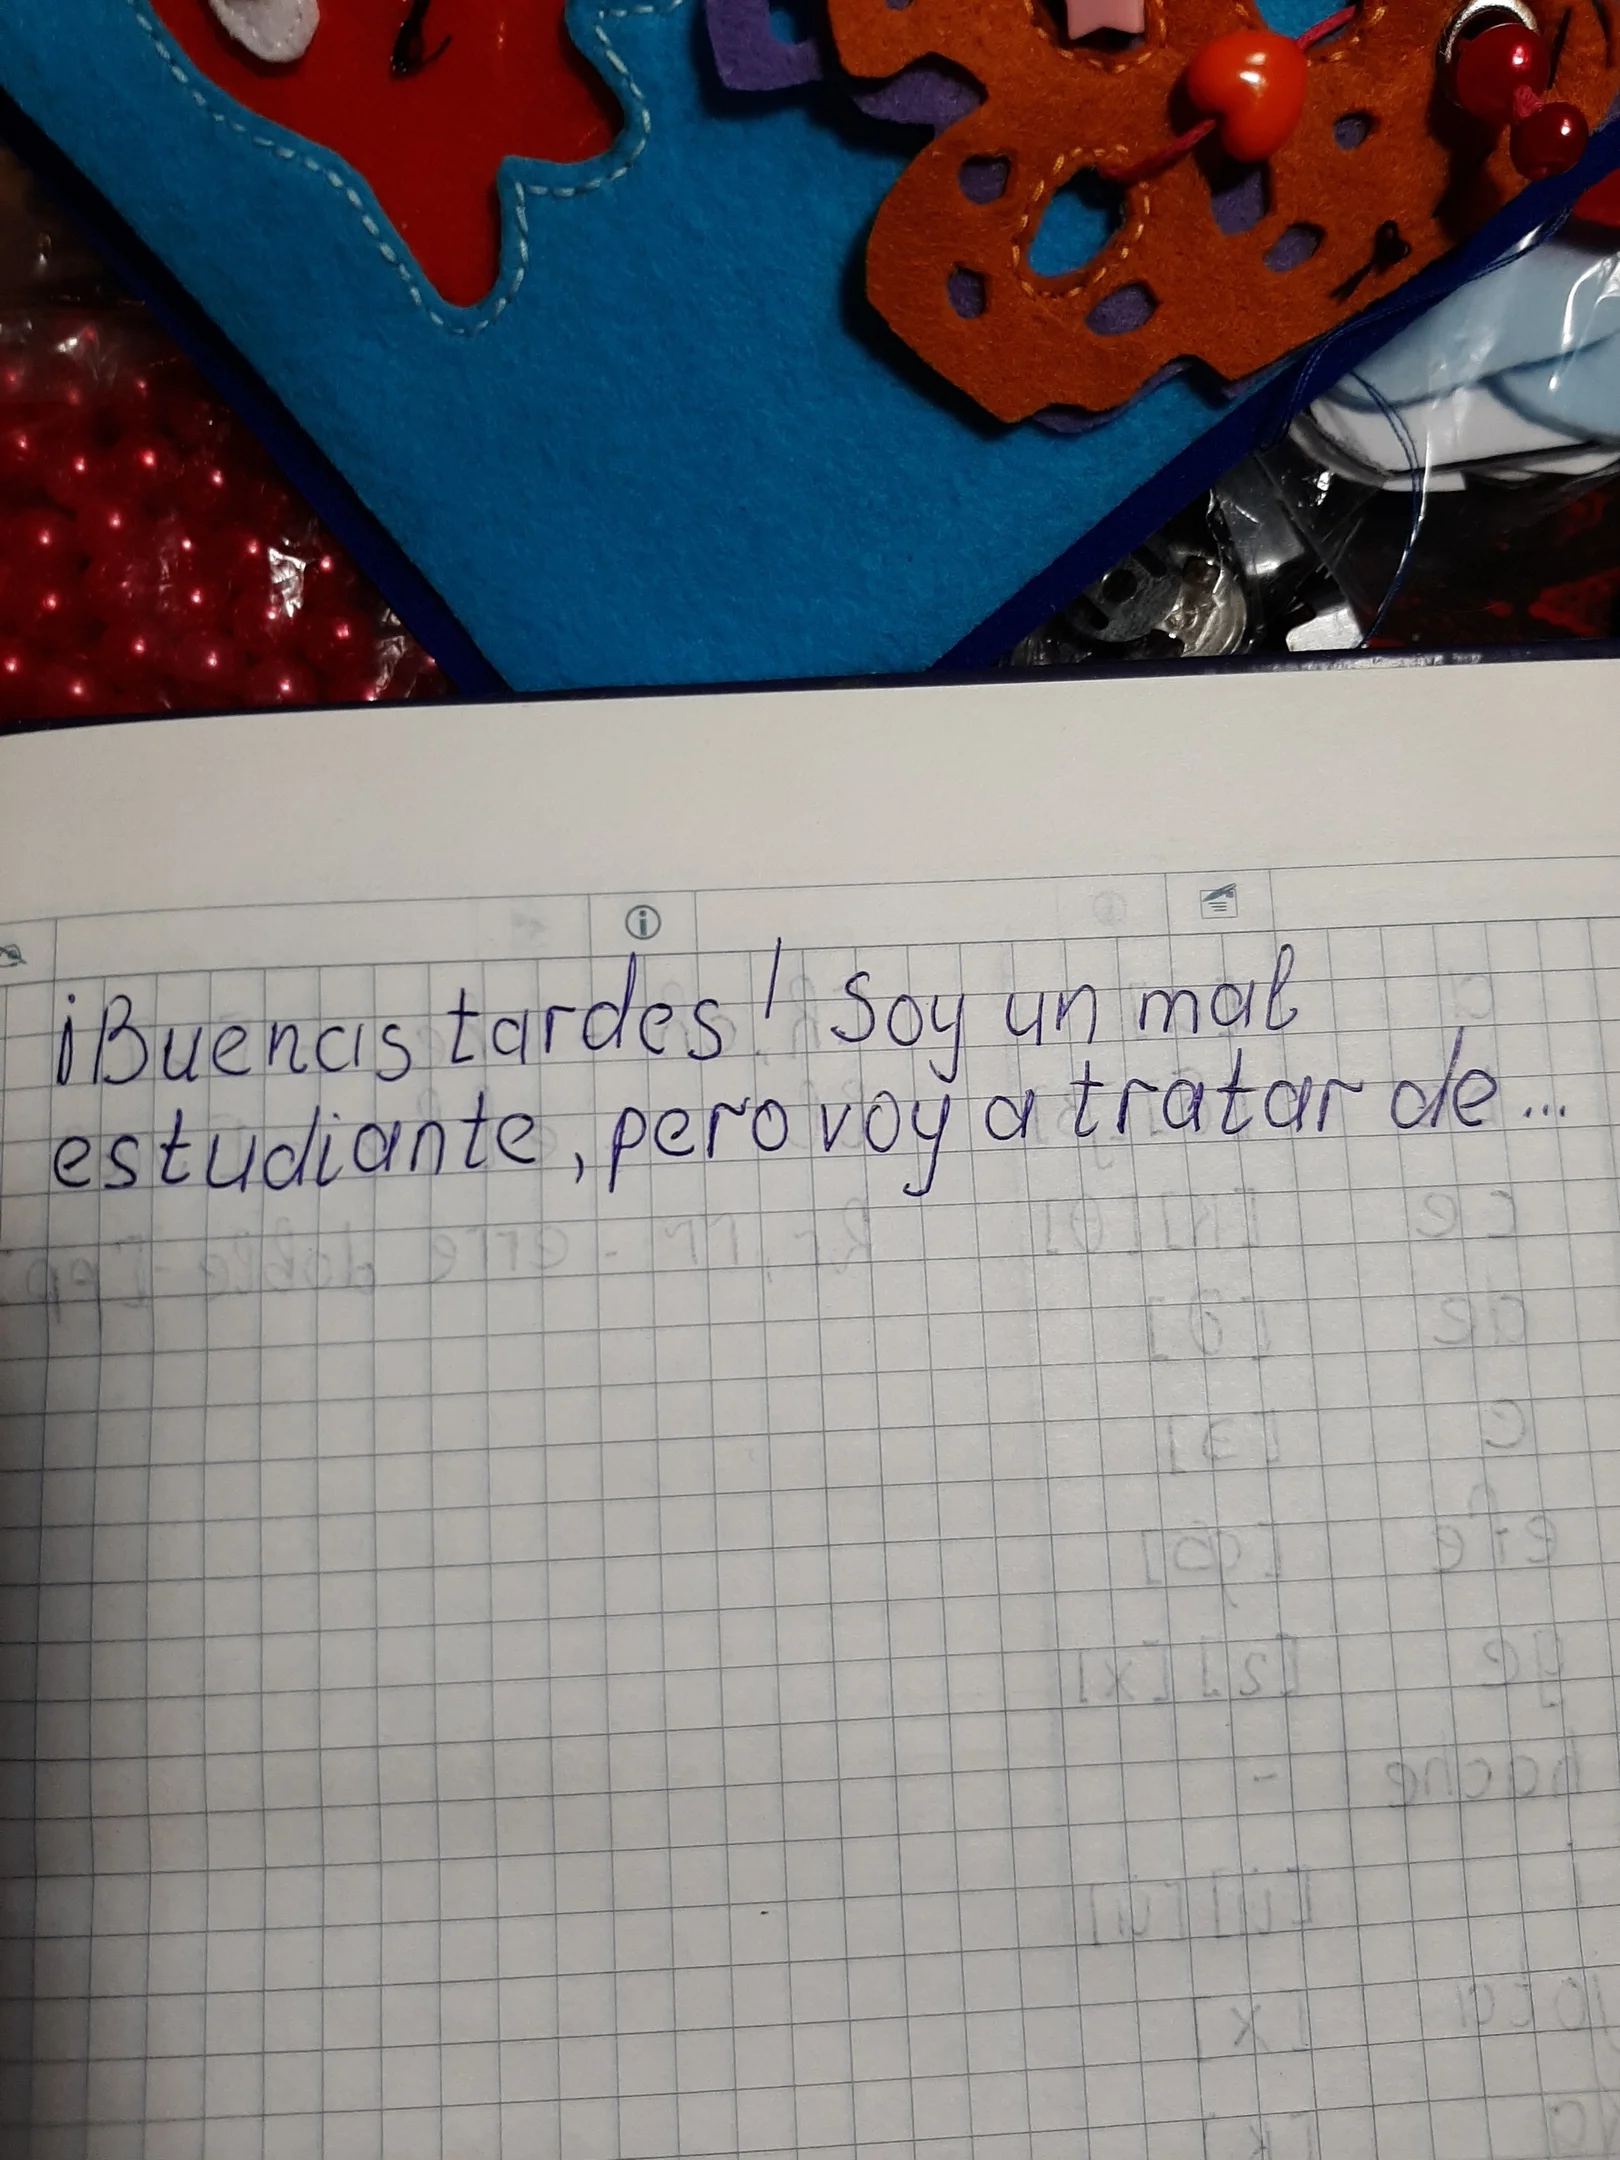 ¡Buenas tardes! Soy un mal
estudiante, pero voy a tratar de...